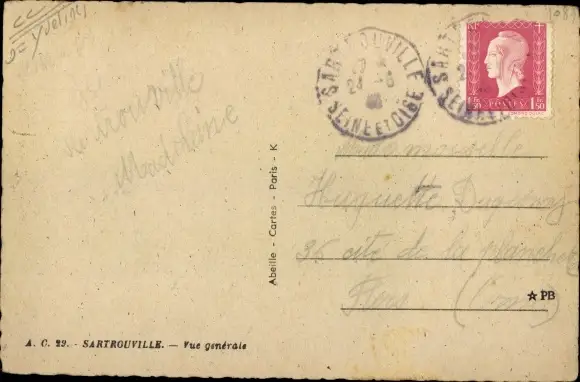 = Yvelines
SARTROUVILLE
SEINE ET OISE
SARTR
SEINE
1F50 POSTES 1F50
Sartrouville
Madeleine
Mademoiselle
Huguette
36 cité de la planche
Flers (Orne)
Abeille - Cartes - Paris - K
☆ PB
A. C. 29. - SARTROUVILLE. — Vue générale